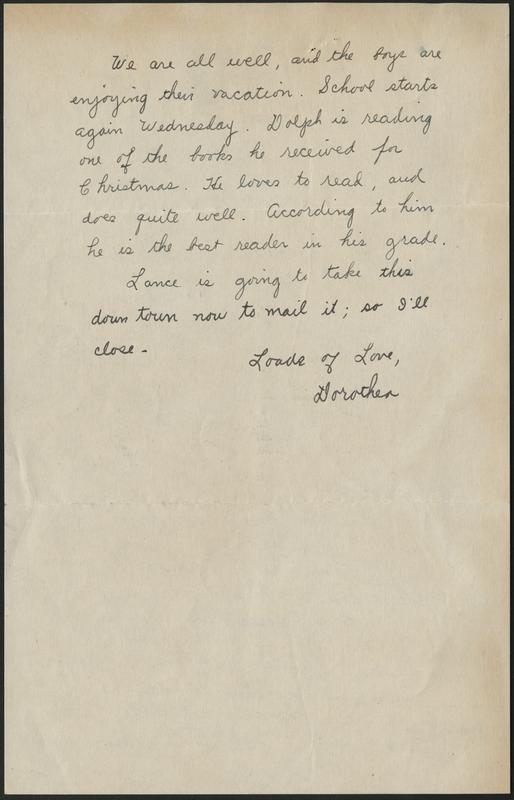 We are all well, and the boys are
enjoying their vacation. School starts
again Wednesday. Dolph is reading
one of the books he received for
Christmas. He loves to read, and
does quite well. According to him
he is the best reader in his grade.
Lance is going to take this
down town now to mail it; so I'll
close.
Loads of Love,
Dorothea